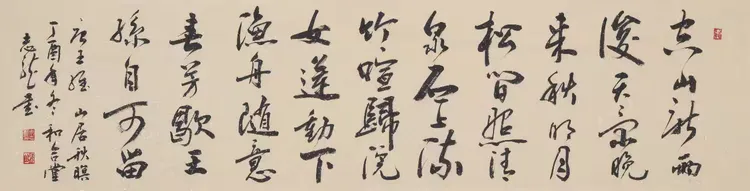 空山新雨
後天氣晚
來秋明月
松間照清
泉石上流
竹喧歸浣
女蓮動下
漁舟隨意
春芳歇王
孫自可留
唐王維 山居秋暝
丁酉年冬 和合堂
志龍書